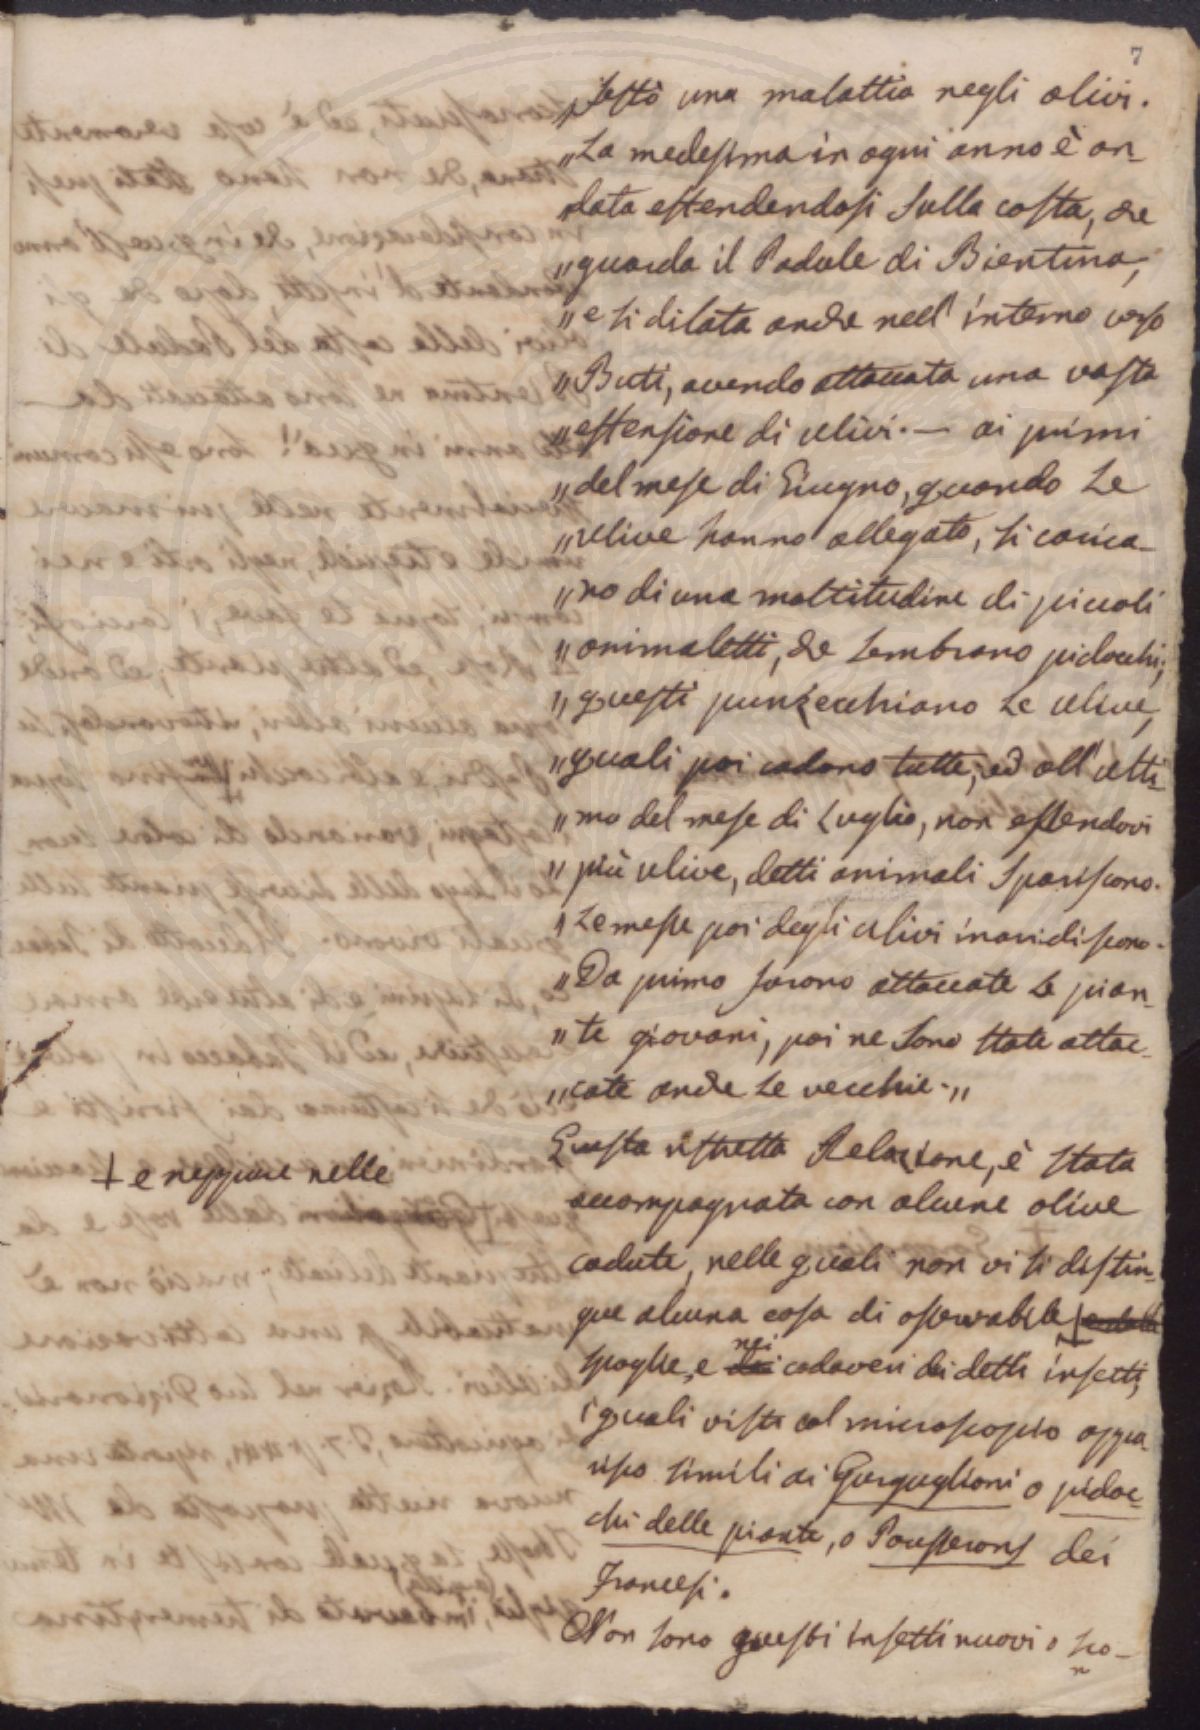 7
festò una malattia negli olivi.
„La medesima in ogni anno è an-
„data estendendosi sulla costa, che
„guarda il Padule di Bientina,
„e si dilata anche nell' interno verso
„Buti, avendo attaccata una vasta
„estensione di ulivi. — ai primi
„del mese di Giugno, quando le
„ulive hanno allegato, si carica-
„no di una moltitudine di piccoli
„animaletti, che sembrano pidocchi;
„questi punzecchiano le ulive,
„quali poi cadono tutte, ed all' ulti-
„mo del mese di Luglio, non essendovi
„più ulive, detti animali spariscono.
„Le messe poi degli ulivi inaridiscono.
„Da primo furono attaccate le pian-
„te giovani, poi ne sono state attac-
„cate anche le vecchie.„
Questa ristretta Relazione, è stata
accompagnata con alcune olive
cadute, nelle quali non vi si distin-
gue alcuna cosa di osservabile +
+ e neppure nelle
spoglie, e nei cadaveri dei detti insetti,
i quali visti col microscopio appa-
risco simili ai Gurguglioni o pidoc-
chi delle piante, o Pousserons dei
Francesi.
Non sono questi insetti nuovi o sco-
n